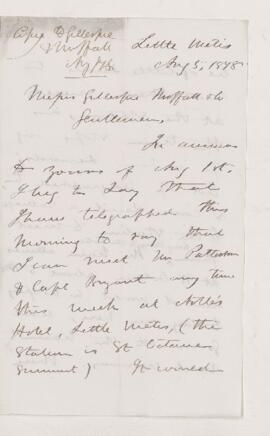 Copy D Gillespie
Moffatt
Aug 3/88
Little Metis
Aug 3, 1888
Messrs Gillespie Moffatt & Co
Gentlemen,
In answer
to yours of Aug 1st.
I beg to say that
I have telegraphed this
morning to say that
I can meet Mr Patterson
& Capt Bryant any time
this week at
Hotel, Little Metis, (the
Station is St Octaves
Summit) It would